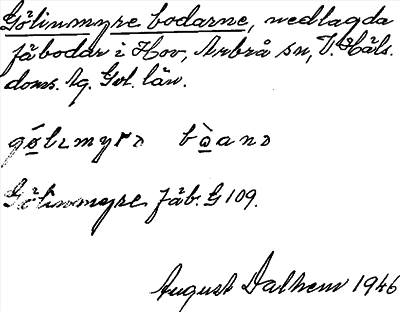 Gölinmyre bodarne, nedlagda
fäbodar i Hov, Arbrå sn, V. Häls.
doms. ag. Gvl. län.
Gölinmyre fäb. G 109.
August Dalhem 1946